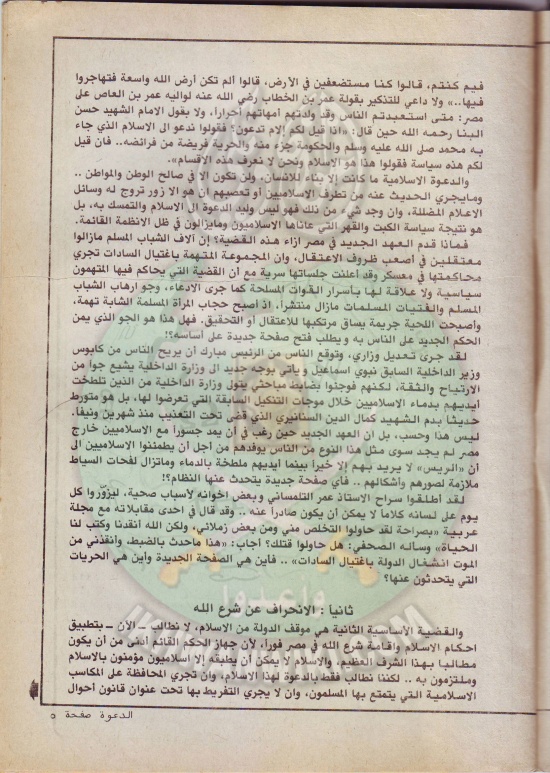 فيم كنتم، قالوا كنا مستضعفين في الأرض، قالوا ألم تكن أرض الله واسعة فتهاجروا
فيها..» ولا داعي للتذكير بقولة عمر بن الخطاب رضي الله عنه لواليه عمر بن العاص على
مصر: متى استعبدتم الناس وقد ولدتهم أمهاتهم أحرارا، ولا بقول الامام الشهيد حسن
البنا رحمه الله حين قال: «اذا قيل لكم إلام تدعون؟ فقولوا ندعو الى الاسلام الذي جاء
به محمد صلى الله عليه وسلم والحكومة جزء منه والحرية فريضة من فرائضه.. فان قيل
لكم هذه سياسة فقولوا هذا هو الاسلام ونحن لا نعرف هذه الأقسام».
والدعوة الاسلامية ما كانت إلا بناء للانسان، ولن تكون الا في صالح الوطن والمواطن ..
ومايجري الحديث عنه من تطرف الاسلاميين أو تعصبهم ان هو الا زور تروج له وسائل
الاعلام المضللة، وان وجد شيء من ذلك فهو ليس وليد الدعوة الى الاسلام والتمسك به، بل
هو نتيجة سياسة الكبت والقهر التي عاناها الاسلاميون ومايزالون في ظل الانظمة القائمة.
فماذا قدم العهد الجديد في مصر ازاء هذه القضية؟ إن آلاف الشباب المسلم مازالوا
معتقلين في أصعب ظروف الاعتقال، وان المجموعة المتهمة باغتيال السادات تجري
محاكمتها في معسكر وقد أعلنت جلساتها سرية مع أن القضية التي يحاكم فيها المتهمون
سياسية ولا علاقة لها بأسرار القوات المسلحة كما جرى الادعاء، وجو ارهاب الشباب
المسلم والفتيات المسلمات مازال منتشراً، اذ اصبح حجاب المرأة المسلمة الشابة تهمة،
وأصبحت اللحية جريمة يساق مرتكبها للأعتقال أو التحقيق، فهل هذا هو الجو الذي يمن
الحكم الجديد على الناس به ويطلب فتح صفحة جديدة على أساسه؟!
لقد جرى تعديل وزاري، وتوقع الناس من الرئيس مبارك أن يريح الناس من كابوس
وزير الداخلية السابق نبوي اسماعيل ويأتي بوجه جديد الى وزارة الداخلية يشيع جواً من
الارتياح والثقة، لكنهم فوجئوا بضابط مباحثي يتول وزارة الداخلية من الذين تلطخت
أيديهم بدماء الاسلاميين خلال موجات التنكيل السابقة التي تعرضوا لها، بل هو متورط
حديثا بدم الشهيد كمال الدين السنانيري الذي قضى تحت التعذيب منذ شهرين ونيفاً.
ليس هذا وحسب، بل ان العهد الجديد حين رغب في أن يمد جسوراً مع الاسلاميين خارج
مصر لم يجد سوى مثل هذا النوع من الناس يوفدهم من أجل أن يطمئنوا الاسلاميين الى
أن «الريس» لا يريد بهم إلا خيراً بينما أيديهم ملطخة بالدماء وماتزال لفحات السياط
ملازمة لصورهم وأشكالهم .. فأي صفحة جديدة يتحدث عنها النظام؟!
لقد اطلقوا سراح الاستاذ عمر التلمساني وبعض اخوانه لأسباب صحية، ليزوّروا كل
يوم على لسانه كلاما لا يمكن أن يكون صادراً عنه .. وقد قال في احدى مقابلاته مع مجلة
عربية «بصراحة لقد حاولوا التخلص مني ومن بعض زملائي، ولكن الله أنقذنا وكتب لنا
الحياة» وسأله الصحفي: هل حاولوا قتلك؟ أجاب: «هذا ماحدث بالضبط، وانقذني من
الموت انشغال الدولة باغتيال السادات» .. فأين هي الصفحة الجديدة وأين هي الحريات
التي يتحدثون عنها؟
ثانيا : الانحراف عن شرع الله
والقضية الأساسية الثانية هي موقف الدولة من الاسلام، لا نطالب ـ الآن ـ بتطبيق
احكام الاسلام وإقامة شرع الله في مصر فوراً، لأن جهاز الحكم القائم أدنى من أن يكون
مطالبا بهذا الشرف العظيم، والاسلام لا يمكن أن يطبقه إلا اسلاميون مؤمنون بالاسلام
وملتزمون به .. لكننا نطالب فقط بالدعوة لهذا الاسلام، وان تجري المحافظة على المكاسب
الاسلامية التي يتمتع بها المسلمون، وان لا يجري التفريط بها تحت عنوان قانون أحوال
الدعوة صفحة ٥
وأعدوا